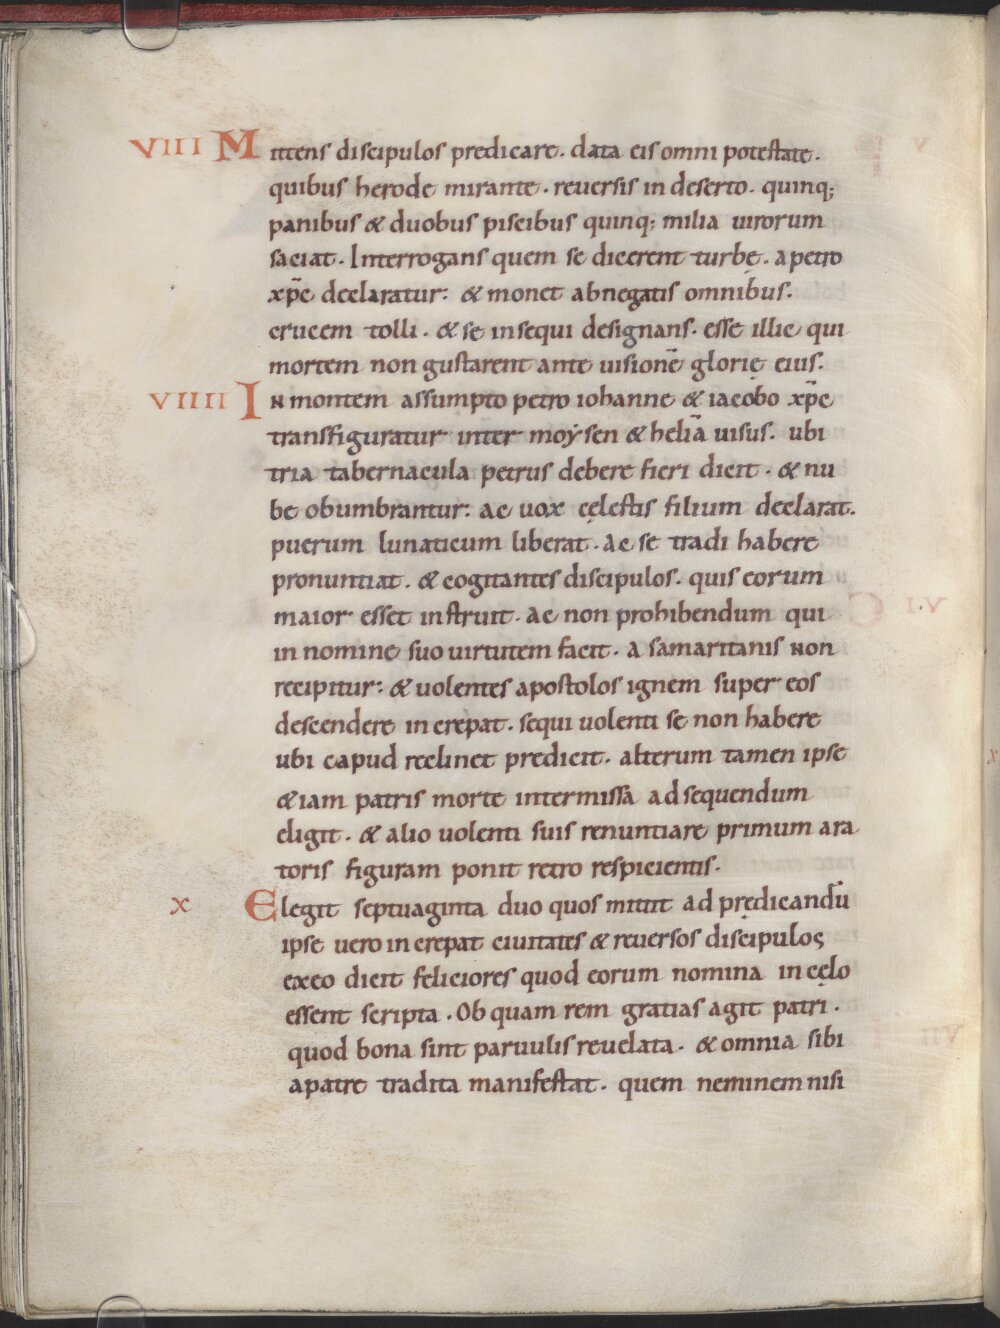 VIII Mittens discipulos predicare. data eis omni potestate.
quibus herode mirante. reuersis in deserto. quinq;
panibus & duobus piscibus quinq; milia uirorum
saciat. Interrogans quem se dicerent turbę. a petro
xp̄c declaratur: & monet abnegatis omnibus.
crucem tolli. & se insequi designans. esse illic qui
mortem non gustarent ante uisionē glorię eius.
VIIII IN montem assumpto petro iohanne & iacobo xp̄c
transfiguratur inter moẏsen & heliā uisus. ubi
tria tabernacula petrus debere fieri dicit. & nu
be obumbrantur: ac uox cęlestis filium declarat.
puerum lunaticum liberat. Ac se tradi habere
pronuntiat. & cogitantes discipulos. quis eorum
maior esset instruit. Ac non prohibendum qui
in nomine suo uirtutem facit. A samaritanis non
recipitur: & uolentes apostolos ignem super eos
descendere increpat. sequi uolenti se non habere
ubi capud reclinet predicit. alterum tamen ipse
&iam patris morte intermissa ad sequendum
eligit. & alio uolenti suis renuntiare primum ara
toris figuram ponit retro respicientis.
X Elegit septuaginta duo quos mittit ad prędicandū
ipse uero increpat ciuitates & reuersos discipulos
ex eo dicit feliciores quod eorum nomina in cęlo
essent scripta. Ob quam rem gratias agit patri.
quod bona sint paruulis reuelata. & omnia sibi
a patre tradita manifestat. quem neminem nisi